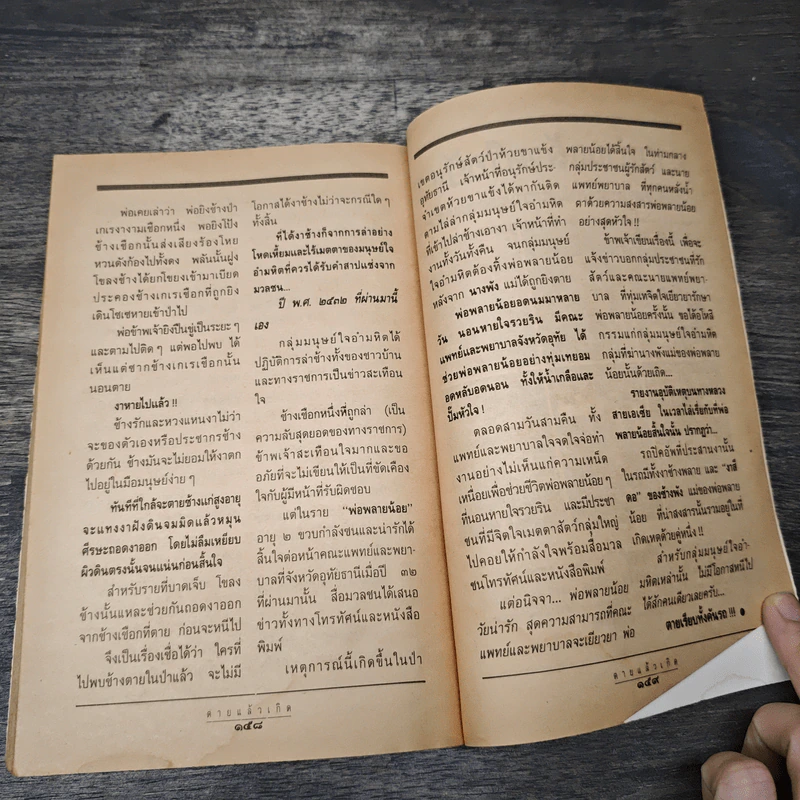 พ่อเคยเล่าว่า พ่อยิงช้างป่า
เกเรงางามเชือกหนึ่ง พอยิงโป้ง
ช้างเชือกนั้นส่งเสียงร้องโหย
หวนดังก้องไปทั้งดง พลันนั้นฝูง
โขลงช้างได้ยกโขยงเข้ามาเบียด
ประคองช้างเกเรเชือกที่ถูกยิง
เดินโซเซหายเข้าป่าไป
พ่อข้าพเจ้ายิงปืนขู่เป็นระยะๆ
และตามไปติดๆ แต่พอไปพบ ได้
เห็นแต่ซากช้างเกเรเชือกนั้น
นอนตาย
งาหายไปแล้ว !!
ช้างรักและหวงแหนงาไม่ว่า
จะของตัวเองหรือประชากรช้าง
ด้วยกัน ช้างมันจะไม่ยอมให้งาตก
ไปอยู่ในมือมนุษย์ง่ายๆ
ทันทีที่ใกล้จะตายช้างแก่สูงอายุ
จะแทงงาฝังดินจมมิดแล้วหมุน
ศีรษะถอดงาออก โดยไม่ลืมเหยียบ
ผิวดินตรงนั้นจนแน่นก่อนสิ้นใจ
สำหรับรายที่บาดเจ็บ โขลง
ช้างนั้นแหละช่วยกันถอดงาออก
จากช้างเชือกที่ตาย ก่อนจะหนีไป
จึงเป็นเรื่องเชื่อได้ว่า ใครที่
ไปพบช้างตายในป่าแล้ว จะไม่มี
โอกาสได้งาช้างไม่ว่าจะกรณีใดๆ
ทั้งสิ้น
ที่ได้งาช้างก็จากการล่าอย่าง
โหดเหี้ยมและไร้เมตตาของมนุษย์ใจ
อำมหิตที่ควรได้รับคำสาปแช่งจาก
มวลชน...
ปี พ.ศ. ๒๕๓๒ ที่ผ่านมานี้
เอง
กลุ่มมนุษย์ใจอำมหิตได้
ปฏิบัติการล่าช้างทั้งของชาวบ้าน
และทางราชการเป็นข่าวสะเทือน
ใจ
ช้างเชือกหนึ่งที่ถูกล่า (เป็น
ความลับสุดยอดของทางราชการ)
ข้าพเจ้าสะเทือนใจมากและขอ
อภัยที่จะไม่เขียนให้เป็นที่ขัดเคือง
ใจกับผู้มีหน้าที่รับผิดชอบ
แต่ในราย “พ่อพลายน้อย”
อายุ ๒ ขวบกำลังซนและน่ารักได้
สิ้นใจต่อหน้าคณะแพทย์และพยา-
บาลที่จังหวัดอุทัยธานีเมื่อปี ๓๒
ที่ผ่านมานั้น สื่อมวลชนได้เสนอ
ข่าวทั้งทางโทรทัศน์และหนังสือ
พิมพ์
เหตุการณ์นี้เกิดขึ้นในป่า
ตายแล้วเกิด
๑๕๘
เขตอนุรักษ์สัตว์ป่าห้วยขาแข้ง
อุทัยธานี เจ้าหน้าที่อนุรักษ์ประ-
จำเขตห้วยขาแข้งได้พากันติด
ตามไล่ล่ากลุ่มมนุษย์ใจอำมหิต
ที่เข้าไปล่าช้างเอางา เจ้าหน้าที่ทำ
งานทั้งวันทั้งคืน จนกลุ่มมนุษย์
ใจอำมหิตต้องทิ้งพ่อพลายน้อย
หลังจาก นางพัง แม่ได้ถูกยิงตาย
พ่อพลายน้อยอดนมมาหลาย
วัน นอนหายใจรวยริน มีคณะ
แพทย์และพยาบาลจังหวัดอุทัย ได้
ช่วยพ่อพลายน้อยอย่างทุ่มเทยอม
อดหลับอดนอน ทั้งให้น้ำเกลือและ
ปั๊มหัวใจ !
ตลอดสามวันสามคืน ทั้ง
แพทย์และพยาบาลใจจดใจจ่อทำ
งานอย่างไม่เห็นแก่ความเหน็ด
เหนื่อยเพื่อช่วยชีวิตพ่อพลายน้อยๆ
ที่นอนหายใจรวยริน และมีประชา
ชนที่มีจิตใจเมตตาสัตว์กลุ่มใหญ่
ไปคอยให้กำลังใจพร้อมสื่อมวล
ชนโทรทัศน์และหนังสือพิมพ์
แต่อนิจจา... พ่อพลายน้อย
วัยน่ารัก สุดความสามารถที่คณะ
แพทย์และพยาบาลจะเยียวยา พ่อ
พลายน้อยได้สิ้นใจ ในท่ามกลาง
กลุ่มประชาชนผู้รักสัตว์ และนาย
แพทย์พยาบาล ที่ทุกคนหลั่งน้ำ
ตาด้วยความสงสารพ่อพลายน้อย
อย่างสุดหัวใจ !!
ข้าพเจ้าเขียนเรื่องนี้ เพื่อจะ
แจ้งข่าวบอกกลุ่มประชาชนที่รัก
สัตว์และคณะนายแพทย์พยา-
บาล ที่ทุ่มเทจิตใจเยียวยารักษา
พ่อพลายน้อยครั้งนั้น ขอได้อโหสิ
กรรมแก่กลุ่มมนุษย์ใจอำมหิต
กลุ่มที่ฆ่านางพังแม่ของพ่อพลาย
น้อยนั้นด้วยเถิด...
รายงานอุบัติเหตุบนทางหลวง
สายเอเซีย ในเวลาไล่เรี่ยกับที่พ่อ
พลายน้อยสิ้นใจนั้น ปรากฏว่า...
รถปิคอัพที่ประสานงานั้น
ในรถมีทั้งงาช้างพลาย และ “งาสี
ดอ” ของช้างพัง แม่ของพ่อพลาย
น้อย ที่น่าสงสารนั้นรวมอยู่ในที่
เกิดเหตุด้วยคู่หนึ่ง !!
สำหรับกลุ่มมนุษย์ใจอำ-
มหิตเหล่านั้น ไม่มีโอกาสหนีไป
ได้สักคนเดียวเลยครับ...
ตายเรียบทั้งคันรถ !!! ●
ตายแล้วเกิด
๑๕๙